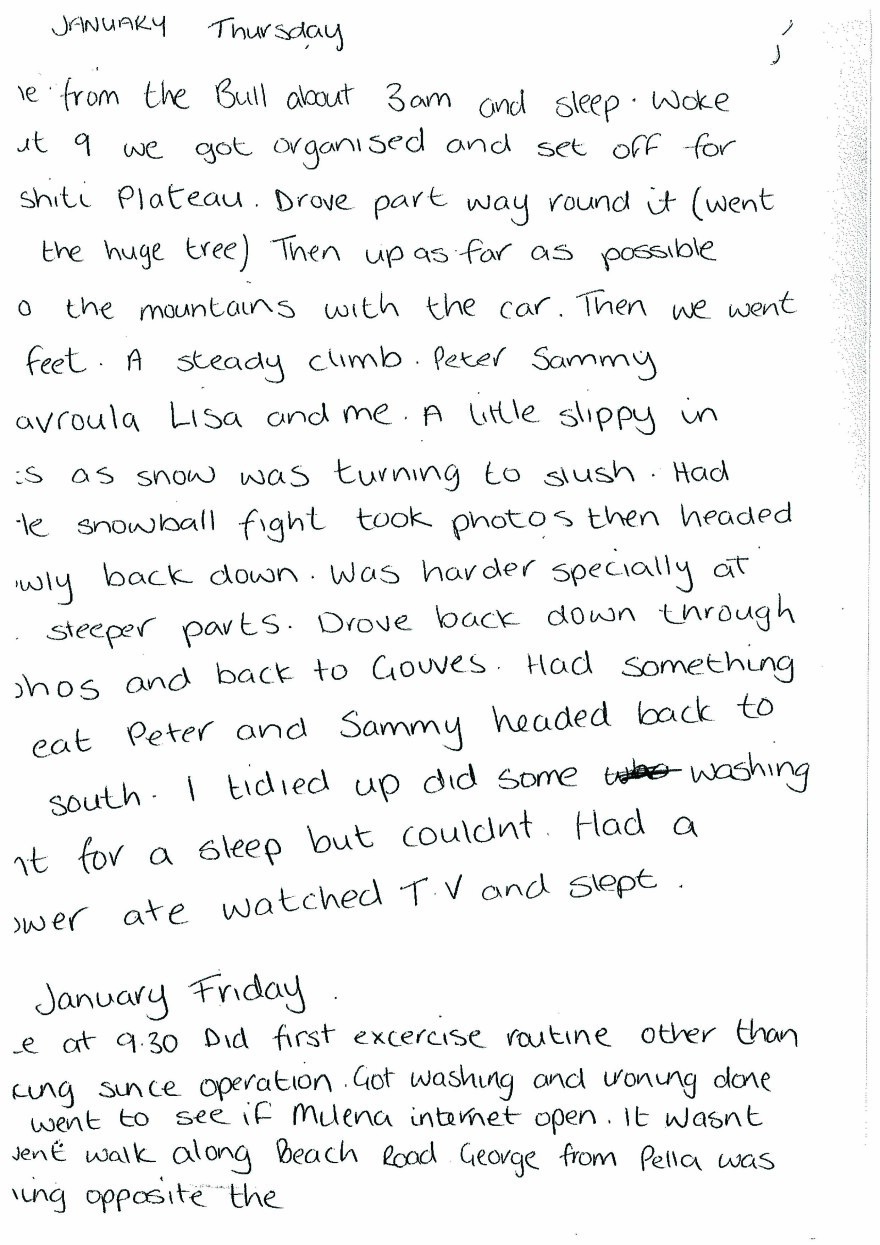 JANUARY Thursday
from the Bull about 3am and sleep. Woke
9 we got organised and set off for
Plateau. Drove part way round it (went
the huge tree) Then up as far as possible
the mountains with the car. Then we went
feet. A steady climb. Peter Sammy
avroula Lisa and me. A little slippy in
as snow was turning to slush. Had
snowball fight took photos then headed
wly back down. Was harder specially at
steeper parts. Drove back down through
hos and back to Gouves. Had something
eat Peter and Sammy headed back to
south. I tidied up did some washing
for a sleep but couldnt. Had a
wer ate watched T.V and slept.
January Friday.
e at 9.30 Did first excercise routine other than
king since operation. Got washing and ironing done
went to see if Milena internet open. It wasnt
ent walk along Beach Road George from Pella was
ing opposite the